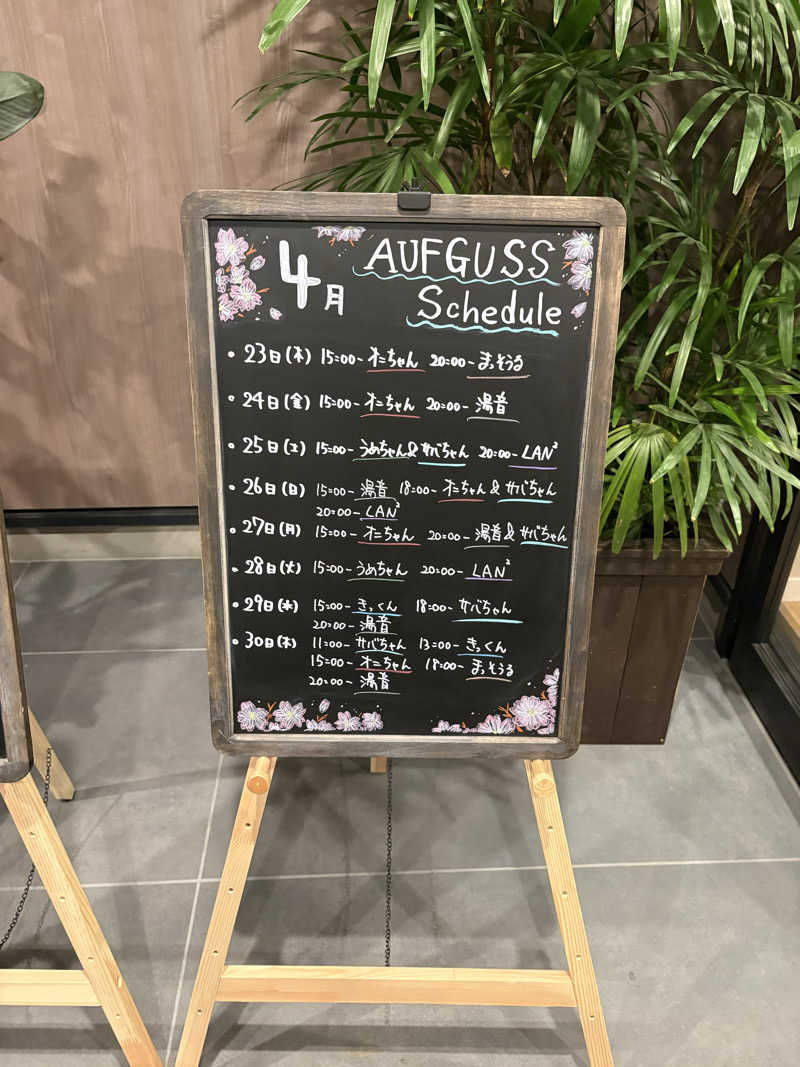 4月 AUFGUSS
Schedule
・23日(木) 15:00- オニちゃん 20:00- まっそうる
・24日(金) 15:00- オニちゃん 20:00- 湯音
・25日(土) 15:00- うめちゃん&サバちゃん 20:00- LAN²
・26日(日) 15:00- 湯音 18:00- オニちゃん&サバちゃん
20:00- LAN²
・27日(月) 15:00- オニちゃん 20:00- 湯音&サバちゃん
・28日(火) 15:00- うめちゃん 20:00- LAN²
・29日(水) 15:00- きっくん 18:00- サバちゃん
20:00- 湯音
・30日(木) 11:00- サバちゃん 13:00- きっくん
15:00- オニちゃん 18:00- まっそうる
20:00- 湯音